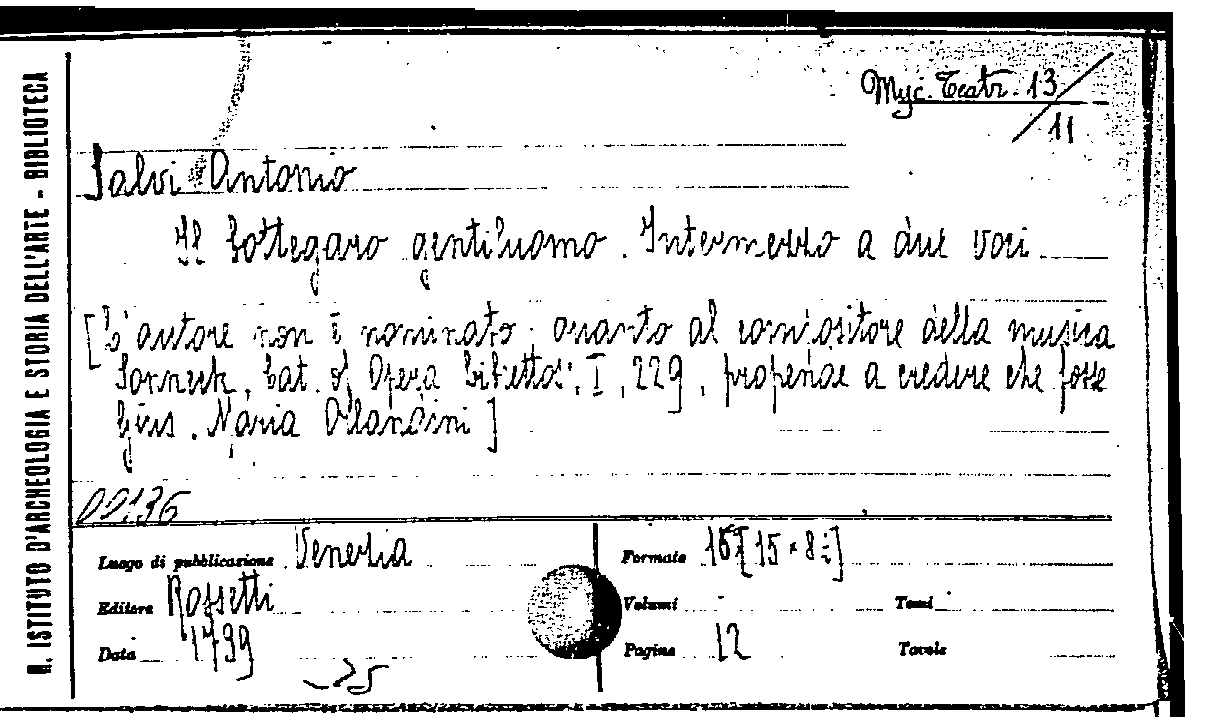 R. ISTITUTO D'ARCHEOLOGIA E STORIA DELL'ARTE - BIBLIOTECA
Misc. Teatr. 13/11
Salvi Antonio
Il bottegaro gentiluomo. Intermezzo a due voci
[L'autore non è nominato; quanto al compositore della musica
Sonneck, Cat. of Opera Librettos, I, 229, propende a credere che fosse
Gius. Maria Orlandini]
Luogo di pubblicazione Venezia
Editore Rossetti
Data 1739
Formato 16°[15 × 8]
Volumi
Tomi
Pagine 12
Tavole